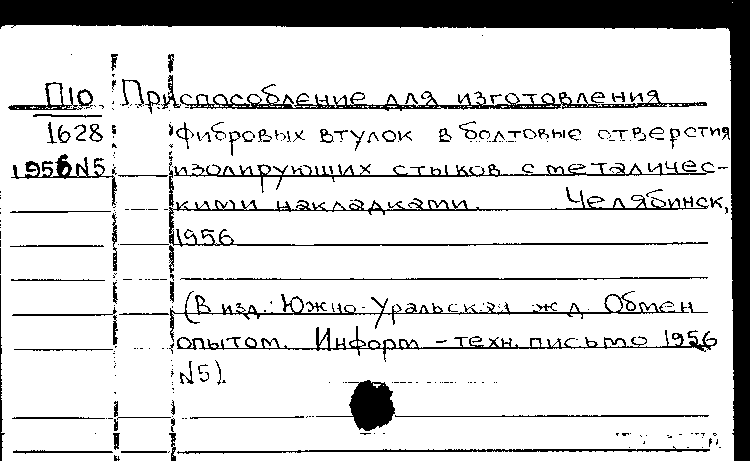 П10 Приспособление для изготовления
1628 фибровых втулок в болтовые отверстия
1956 N5 изолирующих стыков с металичес-
кими накладками. Челябинск,
1956
(В изд.: Южно-Уральская ж.д. Обмен
опытом. Информ-техн. письмо 1956
N5).